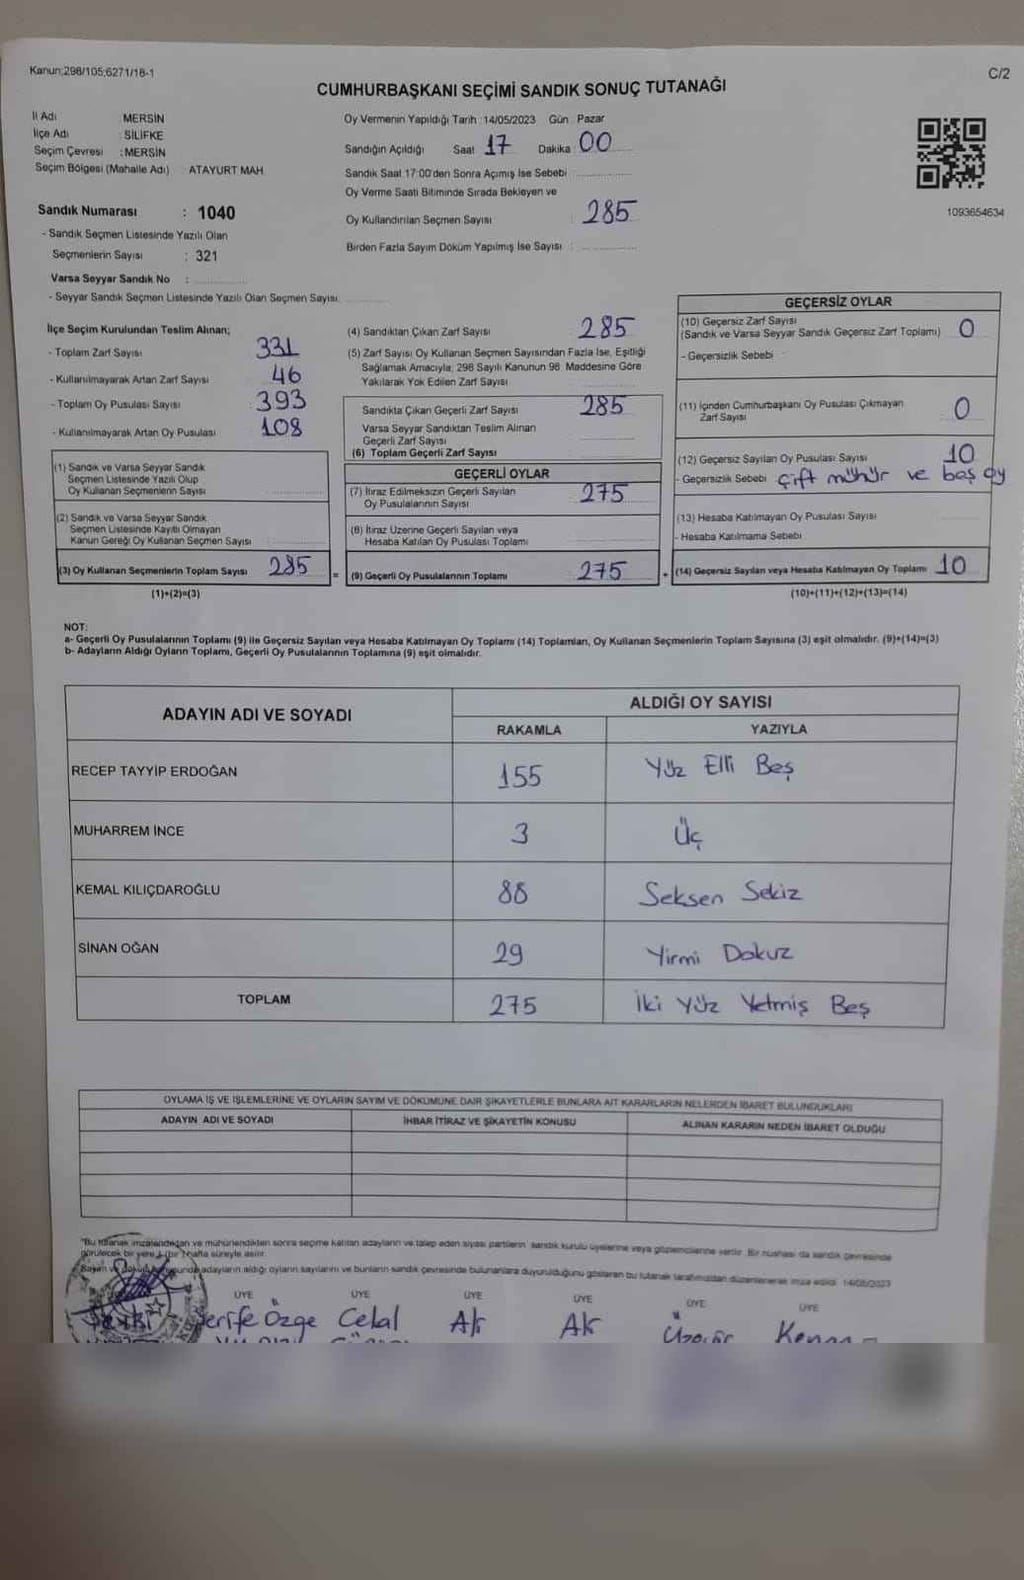 Kanun;298/105;6271/18-1
C/2
CUMHURBAŞKANI SEÇİMİ SANDIK SONUÇ TUTANAĞI
İl Adı : MERSİN
İlçe Adı : SİLİFKE
Seçim Çevresi : MERSİN
Seçim Bölgesi (Mahalle Adı) : ATAYURT MAH.
Sandık Numarası : 1040
- Sandık Seçmen Listesinde Yazılı Olan
Seçmenlerin Sayısı : 321
Varsa Seyyar Sandık No :
- Seyyar Sandık Seçmen Listesinde Yazılı Olan Seçmen Sayısı:
Oy Vermenin Yapıldığı Tarih :14/05/2023 Gün : Pazar
Sandığın Açıldığı Saat 17 Dakika 00
Sandık Saat 17:00'den Sonra Açımış İse Sebebi :
Oy Verme Saati Bitiminde Sırada Bekleyen ve
Oy Kullandırılan Seçmen Sayısı : 285
Birden Fazla Sayım Döküm Yapılmış İse Sayısı :
1093654634
İlçe Seçim Kurulundan Teslim Alınan;
- Toplam Zarf Sayısı 331
- Kullanılmayarak Artan Zarf Sayısı 46
- Toplam Oy Pusulası Sayısı 393
- Kullanılmayarak Artan Oy Pusulası 108
(1) Sandık ve Varsa Seyyar Sandık
Seçmen Listesinde Yazılı Olup
Oy Kullanan Seçmenlerin Sayısı
(2) Sandık ve Varsa Seyyar Sandık
Seçmen Listesinde Kayıtlı Olmayan
Kanun Gereği Oy Kullanan Seçmen Sayısı
(3) Oy Kullanan Seçmenlerin Toplam Sayısı 285
(1)+(2)=(3)
(4) Sandıktan Çıkan Zarf Sayısı 285
(5) Zarf Sayısı Oy Kullanan Seçmen Sayısından Fazla İse, Eşitliği
Sağlamak Amacıyla; 298 Sayılı Kanunun 98. Maddesine Göre
Yakılarak Yok Edilen Zarf Sayısı
Sandıkta Çıkan Geçerli Zarf Sayısı 285
Varsa Seyyar Sandıktan Teslim Alınan
Geçerli Zarf Sayısı
(6) Toplam Geçerli Zarf Sayısı
GEÇERLİ OYLAR
(7) İtiraz Edilmeksizin Geçerli Sayılan
Oy Pusulasının Sayısı 275
(8) İtiraz Üzerine Geçerli Sayılan veya
Hesaba Katılan Oy Pusulası Toplamı
= (9) Geçerli Oy Pusulalarının Toplamı 275 +
GEÇERSİZ OYLAR
(10) Geçersiz Zarf Sayısı
(Sandık ve Varsa Seyyar Sandık Geçersiz Zarf Toplamı) 0
- Geçersizlik Sebebi :
(11) İçinden Cumhurbaşkanı Oy Pusulası Çıkmayan
Zarf Sayısı 0
(12) Geçersiz Sayılan Oy Pusulası Sayısı 10
- Geçersizlik Sebebi çift mühür ve boş oy
(13) Hesaba Katılmayan Oy Pusulası Sayısı
- Hesaba Katılmama Sebebi
(14) Geçersiz Sayılan veya Hesaba Katılmayan Oy Toplamı 10
(10)+(11)+(12)+(13)=(14)
NOT:
a- Geçerli Oy Pusulalarının Toplamı (9) ile Geçersiz Sayılan veya Hesaba Katılmayan Oy Toplamı (14) Toplamları, Oy Kullanan Seçmenlerin Toplam Sayısına (3) eşit olmalıdır. (9)+(14)=(3)
b- Adayların Aldığı Oyların Toplamı, Geçerli Oy Pusulalarının Toplamına (9) eşit olmalıdır.
ADAYIN ADI VE SOYADI
ALDIĞI OY SAYISI
RAKAMLA YAZIYLA
RECEP TAYYİP ERDOĞAN 155 Yüz Elli Beş
MUHARREM İNCE 3 Üç
KEMAL KILIÇDAROĞLU 88 Seksen Sekiz
SİNAN OĞAN 29 Yirmi Dokuz
TOPLAM 275 İki Yüz Yetmiş Beş
OYLAMA İŞ VE İŞLEMLERİNE VE OYLARIN SAYIM VE DÖKÜMÜNE DAİR ŞİKAYETLERLE BUNLARA AİT KARARLARIN NELERDEN İBARET BULUNDUKLARI
ADAYIN ADI VE SOYADI İHBAR İTİRAZ VE ŞİKAYETİN KONUSU ALINAN KARARIN NEDEN İBARET OLDUĞU
"Bu tutanak imzalandıktan ve mühürlendikten sonra seçime katılan adayların ve talep eden siyasi partilerin sandık kurulu üyelerine veya gözlemcilerine verilir. Bir nüshası da sandık çevresinde
görülecek bir yere 1 (bir) hafta süreyle asılır.
adayların aldığı oyların sayılarını ve bunların sandık çevresinde bulunanlara duyurulduğunu gösteren bu tutanak tarafımızdan düzenlenerek imza edildi. 14/05/2023
ÜYE ÜYE ÜYE ÜYE ÜYE ÜYE
Şerife Özge Celal Ak Kenan